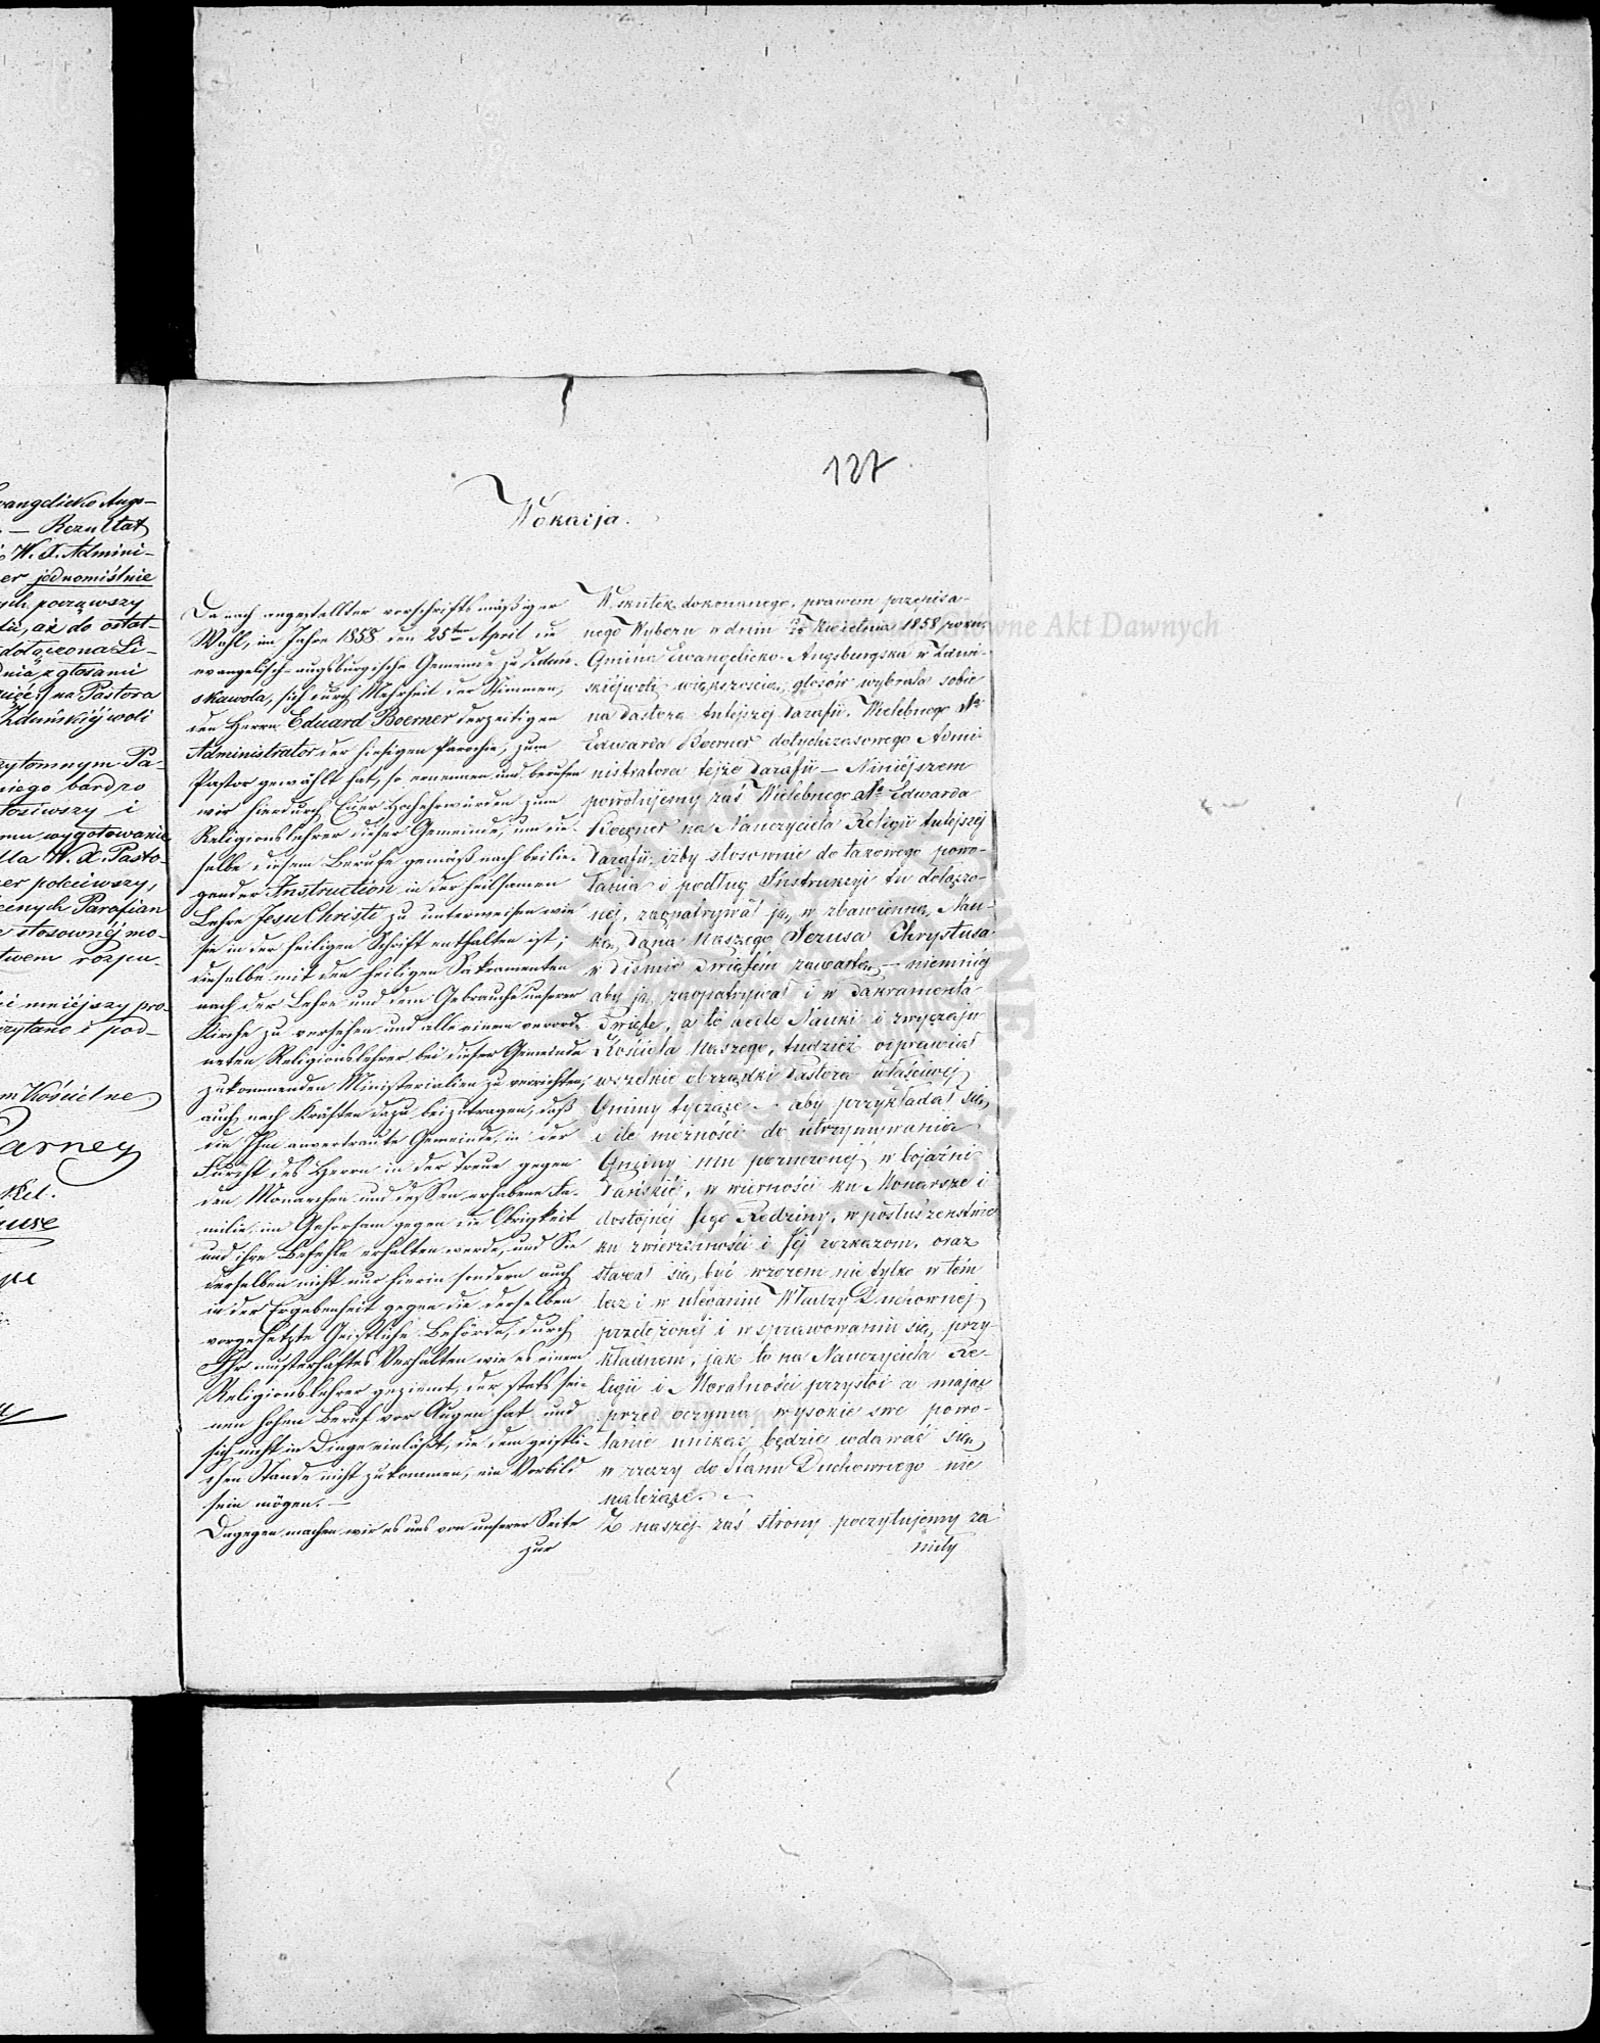 vangelicko Augs-
— Rezultat
W. X. Admini-
er jednomyślnie
ych począwszy
, aż do ostat-
dołączona Li-
głosami
na Pastora
Zduńskiéj woli
zytomnym Pa-
niego bardzo
i
mu wygotowanie
dla W. X. Pasto-
er poleciwszy,
cenych Parafian
stosownéj mo-
rozpu-
niniejszy pro-
czytano i pod-
m Kościelne
127
Wokacja.
Da nach angestellter vorschriftsmäßiger
Wahl, im Jahre 1858 den 25ten April die
evangelisch-augsburgische Gemeinde zu Zduń-
skawola, sich durch Mehrheit der Stimmen,
den Herrn Eduard Boerner derzeitigen
Administrator der hiesigen Parochie, zum
Pastor gewählt hat, so ernennen und berufen
wir hierdurch Euer Hochehrwürden zum
Religionslehrer dieser Gemeinde, um die-
selbe diesem Berufe gemäß nach beilie-
gender Instruction in der heilsamen
Lehre Jesu Christi zu unterweisen wie
sie in der heiligen Schrift enthalten ist;
dieselbe mit den heiligen Sakramenten
nach der Lehre und dem Gebrauche unserer
Kirche zu versehen und alle einem verord-
neten Religionslehrer bei dieser Gemeinde
zukommenden Ministerialien zu verrichten,
auch nach Kräften dazu beizutragen, daß
die Ihm anvertraute Gemeinde, in der
Furcht des Herrn in der Treue gegen
den Monarchen und dessen erhabene Fa-
milie, im Gehorsam gegen die Obrigkeit
und ihre Befehle erhalten werde, und Sie
derselben nicht nur hierin sondern auch
in der Ergebenheit gegen die derselben
vorgesetzte Geistliche Behörde, durch
Ihr musterhaftes Verhalten wie es einem
Religionslehrer geziemt, der stets sei-
nen hohen Beruf vor Augen hat und
sich nicht in Dinge einläßt, die dem geistli-
chen Stande nicht zukommen, ein Vorbild
sein mögen. —
Dagegen machen wir es uns von unserer Seite
zur
W skutek dokonanego, prawem przepisa-
nego Wyboru w dniu Kwietnia 1858 roku,
Gmina Ewangelicko-Augsburgska w Zduń-
skiéjwoli większością głosów wybrała sobie
na Pastora tutejszéj Parafii, Wielebnego
Edwarda Boerner dotychczasowego Admi-
nistratora tejże Parafii — Niniéjszem
powołujemy zaś Wielebnego Edwarda
Boerner na Nauczyciela Religii tutejszéj
Parafii, iżby stosownie do takowego powo-
łania i podług Instrukcyi tu dołączo-
néj, zaopatrywał ją, w zbawienną Nau-
kę Pana Naszego Jezusa Chrystusa
w Piśmie Świętém zawartą, — niemniéj
aby ją zaopatrywał i w Sakramenta
Święte, a to wedle Nauki i zwyczaju
Kościoła Naszego, tudzież odprawiał
wszelkie obrządki Pastora właściwéj
Gminy tyczące — aby przykładał się
o ile możności do utrzymywania
Gminy mu poruczonéj w bojaźni
Pańskiéj, w wierności ku Monarsze i
dostojnéj Jego Rodziny, w posłuszeństwie
ku zwierzchności i Jéj rozkazom, oraz
starał się być wzorem nie tylko w tém
lecz i w uleganiu Władzy Duchownéj
przełożonéj i w sprawowaniu się, przy-
kładnem, jak to na Nauczyciela Re-
ligii i Moralności przystoi a mając
przed oczyma wysokie swe powo-
łanie unikać będzie wdawać się
w rzeczy do Stanu Duchownego nie
należące. —
Z naszéj zaś strony poczytujemy za
miły
Główne Akt Dawnych